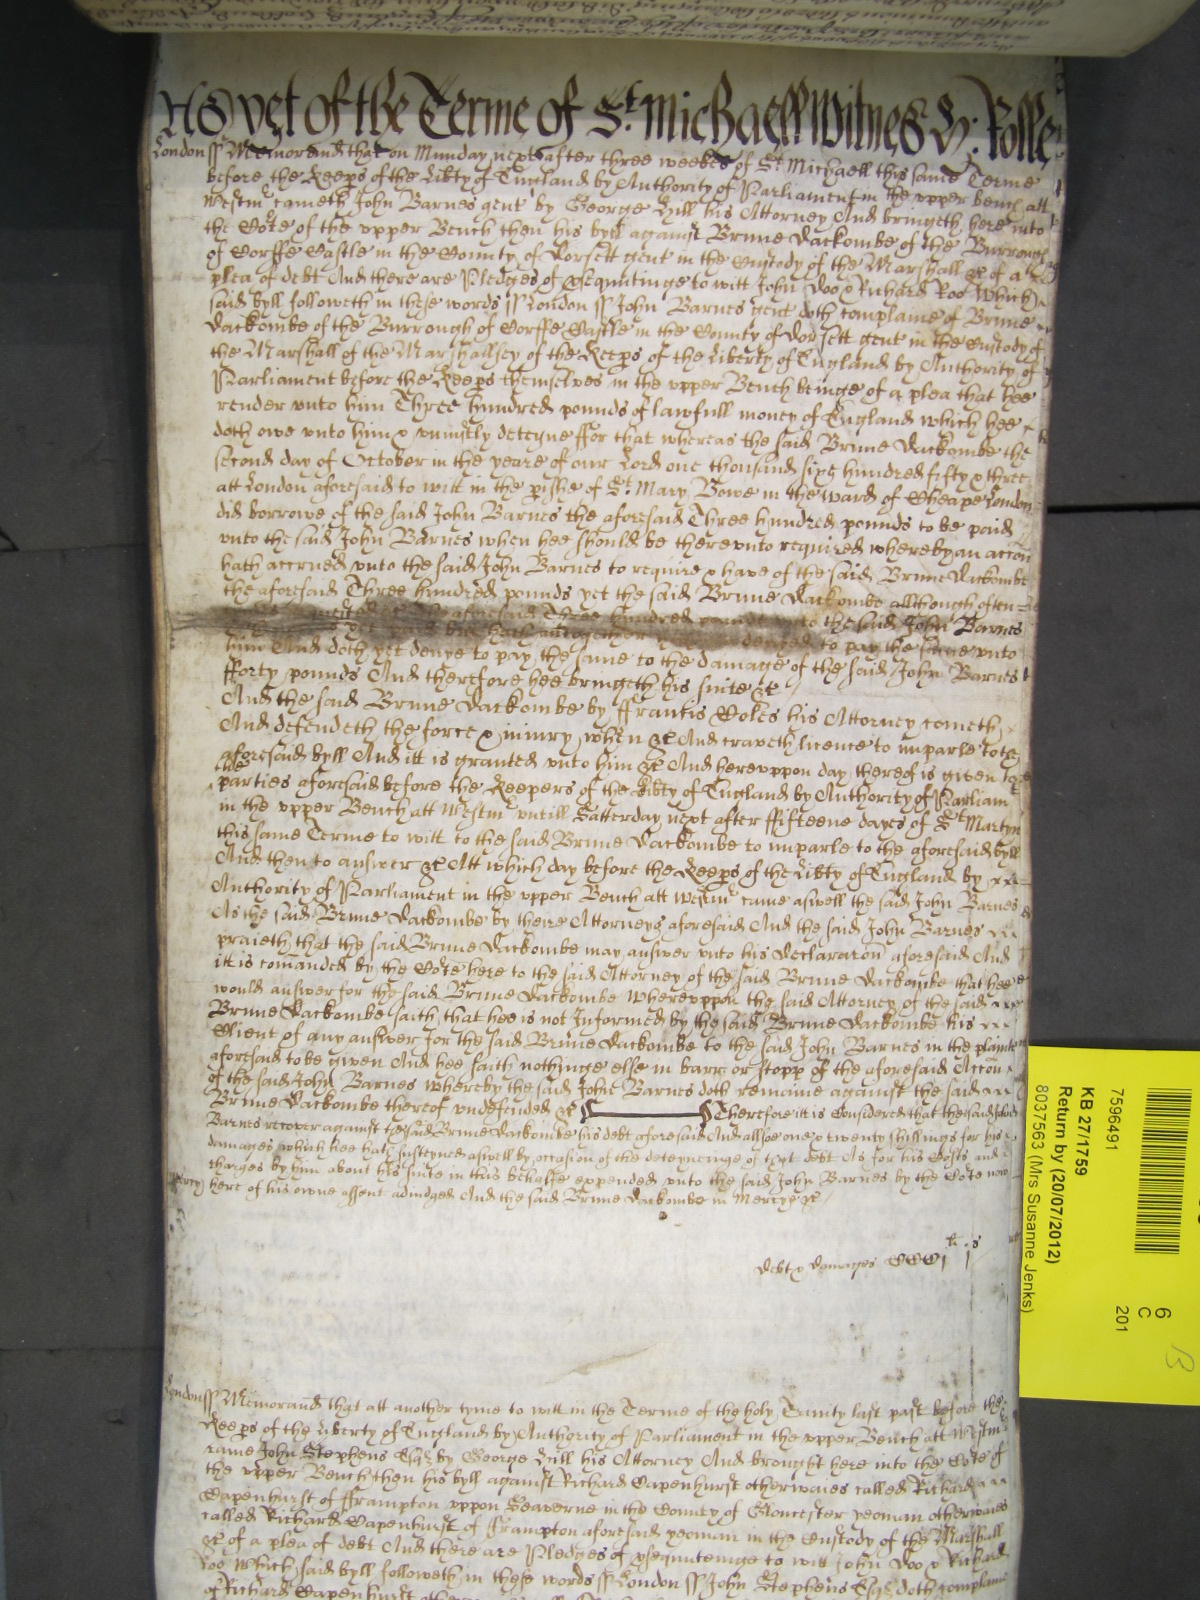 As yet of the Terme of St. Michaell Witnes H: Rolle
London ss Memorand that on Munday next after three weekes of St Michaell this same Terme
before the Keeps of the Libty of England by Authority of Parliament in the upper bench att
Westmr cameth John Barnes gent by George Hill his Attorney And bringeth here into
the Cote of the upper Bench then his byll against Brune Dackombe of the Burrough
of Corffe Castle in the County of Dorsett gent in the Custody of the Marshall &c of a
plea of debt And there are Pledges of psequutinge to witt John Doo & Richard Roo Which
said byll followeth in these words ss London ss John Barnes gent doth complaine of Brune
Dackombe of the Burrough of Corffe Castle in the County of Dorsett gent in the Custody of
the Marshall of the Marshallsey of the Keeps of the Liberty of England by Authority of
Parliament before the Keeps themselves in the upper Bench beinge of a plea that hee
render unto him Three hundred pounds of lawfull money of England which hee
doth owe unto him & uniustly deteyne ffor that whereas the said Brune Dackombe the
second day of October in the yeare of our Lord one thousand sixe hundred fifty & three
att London aforesaid to witt in the pishe of St Mary Bowe in the ward of Cheape London
did borrowe of the said John Barnes the aforesaid Three hundred pounds to be paid
unto the said John Barnes when hee should be thereunto required whereby an accon
hath accrued unto the said John Barnes to require & have of the said Brune Dackombe
the aforesaid Three hundred pounds yet the said Brune Dackombe allthough often
the aforesaid Three hundred pounds unto the said John Barnes
hath not paid but hath altogether denyed to pay the same unto
him And doth yet denye to pay the same to the damage of the said John Barnes
fforty pounds And therefore hee bringeth his suite &c
And the said Brune Dackombe by ffrancis Coles his Attorney cometh
And defendeth the force & iniury when &c And craveth licence to imparle to
aforesaid byll And itt is granted unto him &c And hereuppon day thereof is given to
the parties aforesaid before the Keepers of the Libty of England by Authority of Parliamt
in the upper Bench att Westmr untill Satterday next after ffifteene dayes of St Martyn
this same Terme to witt to the said Brune Dackombe to imparle to the aforesaid byll
And then to answer &c Att which day before the Keeps of the Libty of England by
Authority of Parliament in the upper Bench att Westmr came aswell the said John Barnes
As the said Brune Dackombe by theire Attorneys aforesaid And the said John Barnes
praieth that the said Brune Dackombe may answer unto his declaracon aforesaid And
itt is comanded by the Cote here to the said Attorney of the said Brune Dackombe that hee
would answer for the said Brune Dackombe Whereuppon the said Attorney of the said
Brune Dackombe saith that hee is not Informed by the said Brune Dackombe his
Client of any answer for the said Brune Dackombe to the said John Barnes in the plainte
aforesaid to be given And hee saith nothinge else in barr or stopp of the aforesaid Accon
of the said John Barnes whereby the said John Barnes doth remaine against the said
Brune Dackombe thereof undefended &c Therefore itt is Considered that the said John
Barnes recover against the said Brune Dackombe his debt aforesaid And allsoe one & twenty shillings for his
damages which hee hath susteyned aswell by occasion of the deteyneinge of that debt As for his Costs and
charges by him about his suite in this behalfe expended unto the said John Barnes by the Cote now
mercy here of his owne assent adiudged And the said Brune Dackombe in Mercye &c
Debt & damages CCCjli js
London ss Memorand that att another tyme to witt in the Terme of the holy Trinity last past before the
Keeps of the Liberty of England by Authority of Parliament in the upper Bench att Westmr
came John Stephens Esqr by George Hill his Attorney And brought here into the Cote of
the upper Bench then his byll against Richard Capenhurst otherwaies called Richard
Capenhurst of fframpton uppon Seaverne in the County of Gloucester yeoman otherwaies
called Richard Capenhurst of fframpton aforesaid yeoman in the Custody of the Marshall
&c of a plea of debt And there are Pledges of psequuteinge to witt John Doo & Richard
Roo Which said byll followeth in these words ss London ss John Stephens Esqr doth complaine
of Richard Capenhurst
7596491
KB 27/1759
Return by (20/07/2012)
8037563 (Mrs Susanne Jenks)
6
C
201